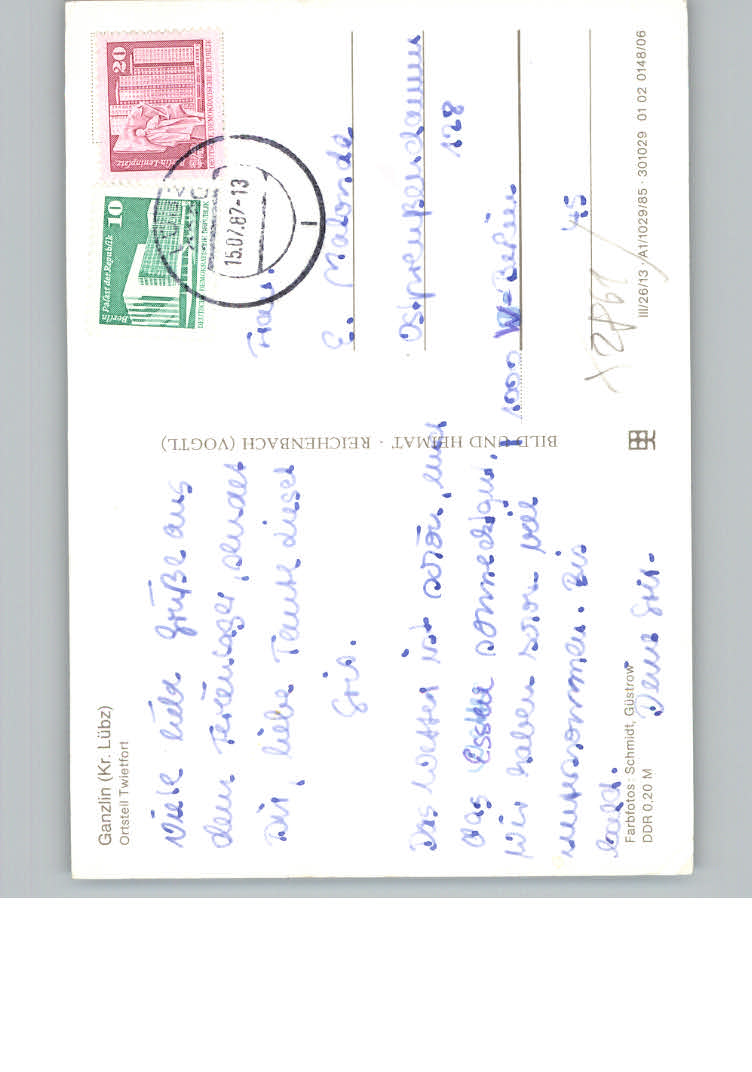 Ganzlin (Kr. Lübz)
Ortsteil Twietfort
Viele liebe Grüße aus
dem Ferienlager, sendet
Dir, liebe Tante dieses
Gris.
Das Wetter ist schön, und
das Essen
Wir haben schon viel
unternommen. Bis
bald.
Deine Gris.
Farbfotos: Schmidt, Güstrow
DDR 0,20 M
BILD UND HEIMAT · REICHENBACH (VOGTL)
20
Berlin-Leninplatz
DEUTSCHE DEMOKRATISCHE REPUBLIK
10
Berlin Palast der Republik
Berlin
DEUTSCHE DEMOKRATISCHE REPUBLIK
15.07.87-13
Frau
E.
Ostpreußendamm
128
1000 W-Berlin
45
III/26/13 A1/1029/85 · 301029 01 02 0148/06